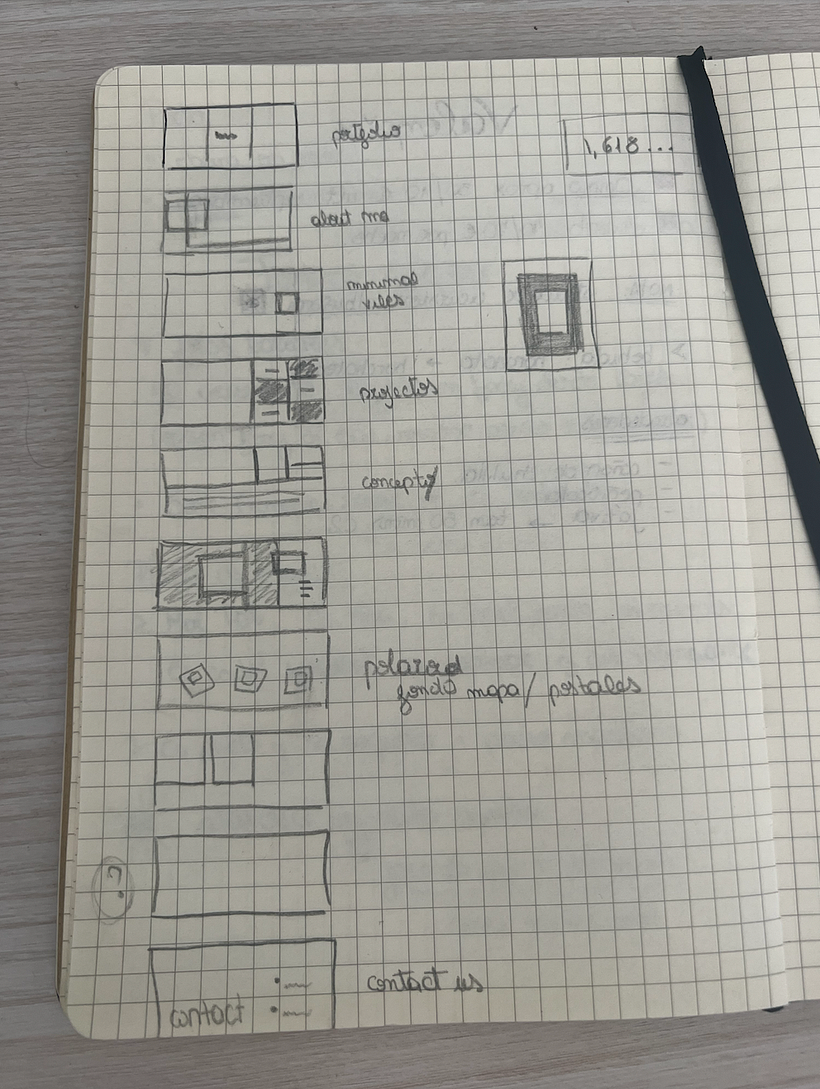 portfolio
1,618...
about me
minimal
vibes
projectos
concept
polaroid
fondo mapa / postales
?
contact us
contact